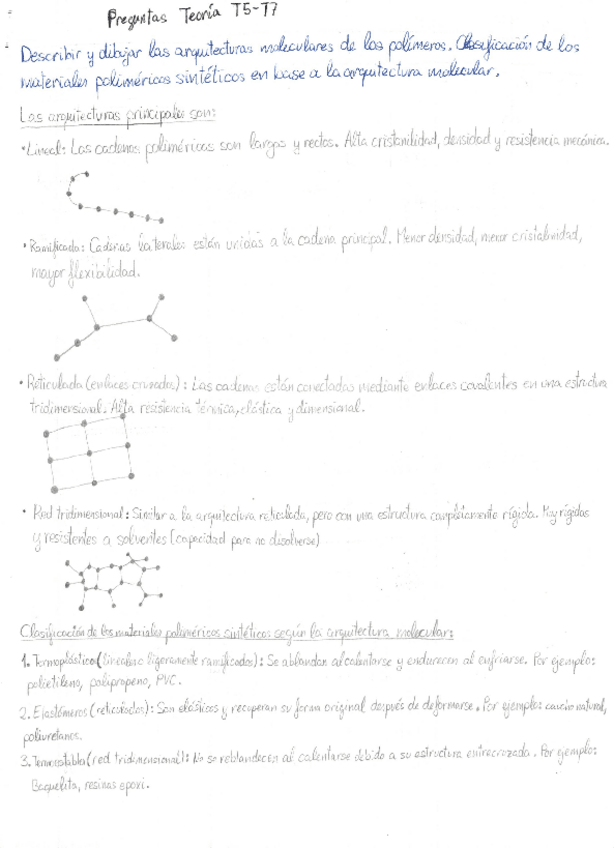 Preguntas Teoría T5-T7
Describir y dibujar las arquitecturas moleculares de los polímeros. Clasificación de los
materiales poliméricos sintéticos en base a la arquitectura molecular.
Las arquitecturas principales son:
· Lineal: Las cadenas poliméricas son largas y rectas. Alta cristanilidad, densidad y resistencia mecánica.
· Ramificada: Cadenas laterales están unidas a la cadena principal. Menor densidad, menor cristalinidad,
mayor flexibilidad.
· Reticulada (enlaces cruzados): Las cadenas están conectadas mediante enlaces covalentes en una estructura
tridimensional. Alta resistencia térmica, elástica y dimensional.
· Red tridimensional: Similar a la arquitectura reticulada, pero con una estructura completamente rígida. Muy rígidas
y resistentes a solventes (capacidad para no disolverse)
Clasificación de los materiales poliméricos sintéticos según la arquitectura molecular:
1. Termoplástico (lineales o ligeramente ramificados): Se ablandan al calentarse y endurecen al enfriarse. Por ejemplo:
polietileno, polipropeno, PVC.
2. Elastómeros (reticulados): Son elásticos y recuperan su forma original después de deformarse. Por ejemplo: caucho natural,
poliuretanos.
3. Termoestable (red tridimensional): No se reblandecen al calentarse debido a su estructura entrecruzada. Por ejemplo:
Baquelita, resinas epoxi.